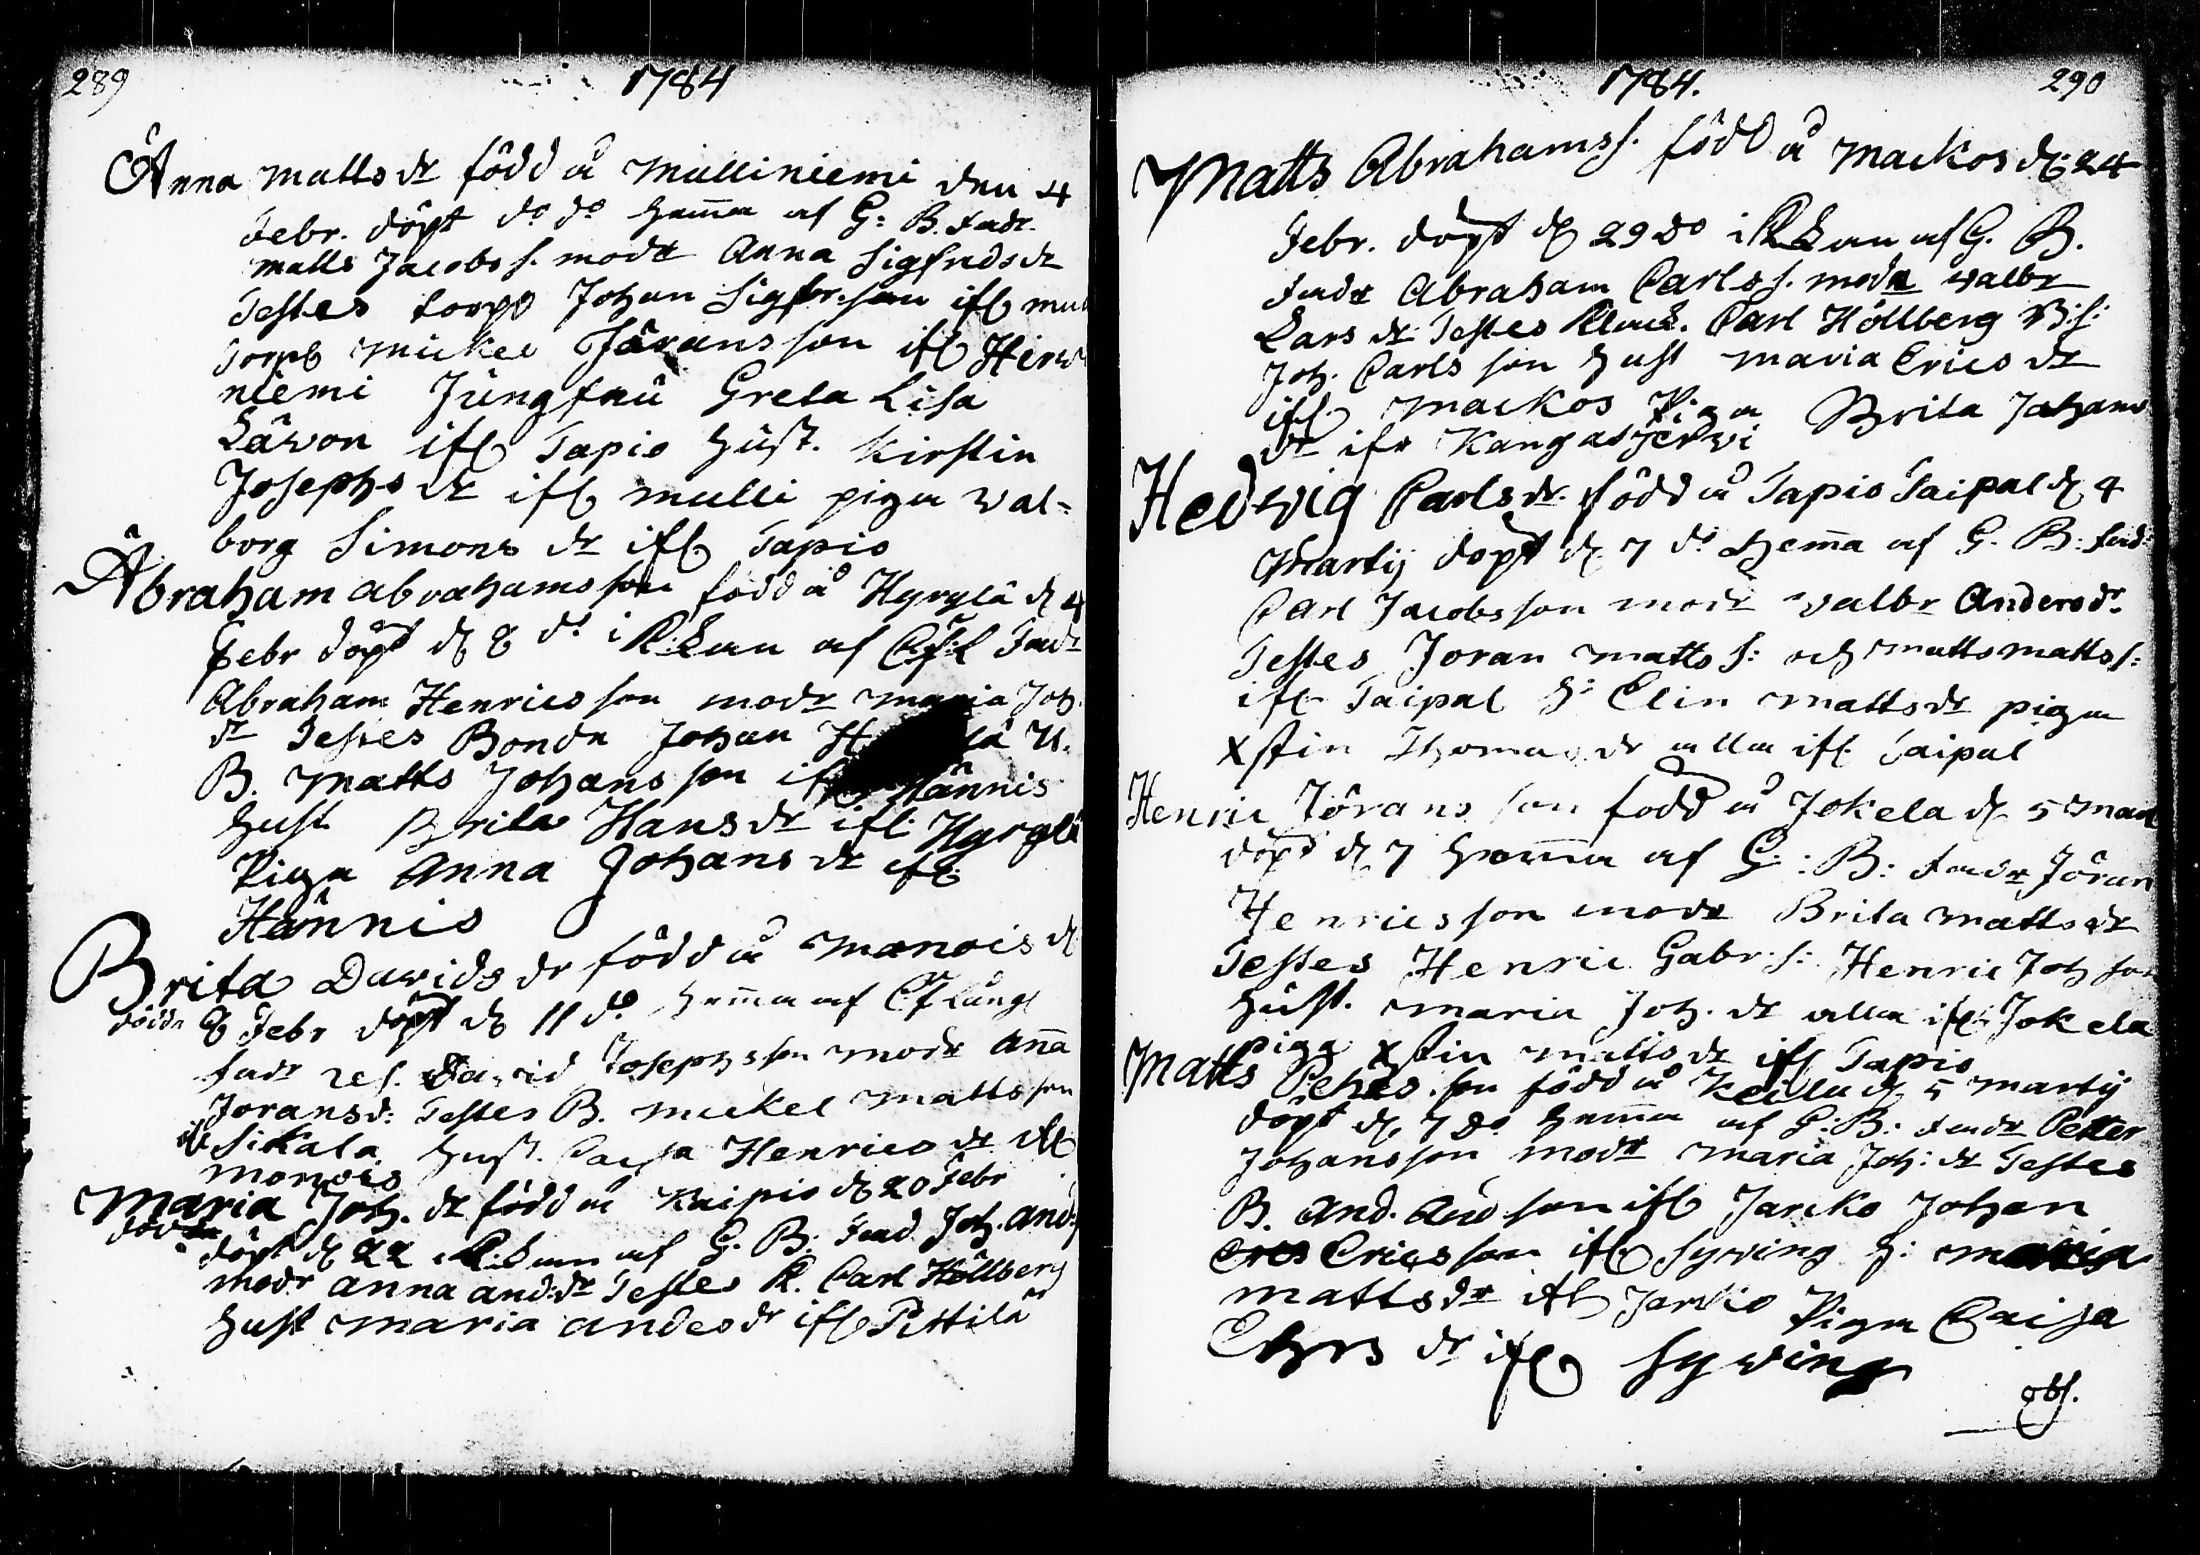 289
1784
Anna Mattsdr född å Mulliniemi den 4
Febr. döpt do do hema af G: B. Fadr.
Matts Jacobs s. modr Anna Sigfridsdr
Testes torp Johan Sigfr.son ifr Mul
Torp Mickel Jöransson ifr Hirw
niemi Jungfru Greta Lisa
Läwon ifr Tapio Hust. Kirstin
Josephsdr ifr Mulli piga Wal=
borg Simonsdr ifr Tapio
Abraham Abrahamsson född å Hyrylä d 4
Febr döpt d 8 do i K: af Fadr
Abraham Henricsson modr Maria Joh.
dr Testes Bonde Johan H lä U.
B. Matts Johansson ifr Hännis
Hust Brita Hansdr ifr Hyrylä
Piga Anna Johansdr ifr
Hännis
Brita Davidsdr född å Manois d
dödde 8 Febr döpt d 11 do hema af
Fadr David Josephsson modr Ana
Joransd: Testes B. Mickel Mattsson
ifr Sikala Hust. Caisa Henricsdr ifr
Monois
Maria Joh. dr född å Kaipio d 20 Febr
döpt d 22 i K: af G. B: Fad Joh. And:
modr Anna And:dr Testes K. Carl Höllberg
Hust Maria Andesdr ifr Pittilä
1784.
290
Matts Abrahamss. född å Mackos d: 24
Febr. döpt d 29 do i K af G. B.
Fadr Abraham Carlss. modr Walbr
Lars dr Testes Klock. Carl Höllberg B:s:
Joh. Carlsson Hust Maria Ericsdr
ifr Mackos Piga Brita Johans
dr ifr Kangasjerwi
Hedwig Carlsdr. född å Tapio Taipal d 4
Martij döpt d 7 do hema af G. B: Fad:
Carl Jacobsson modr Walbr Andersdr.
Testes Joran Matts s: och Matts Mattss:
ifr Taipal H: Elin Mattsdr piga
Xstin Thomasdr alla ifr Taipal
Henric Jöransson född å Jokela d 5 Mart
döpt d 7 hema af G: B: Fadr Jöran
Henricsson modr Brita Mattsdr
Testes Henric Gabr.s: Henric Joh son
Hust. Maria Joh. dr alla ifr Jokela
piga Xstin Mattsdr ifr Tapio
Matts Petersson född å Keilu d 5 Martij
döpt d 7 do hema af G: B: Fadr Petter
Johansson modr Maria Joh: dr Testes
B. And. And son ifr Jarcko Johan
Ericsson ifr Sywing H: Maria
Mattsdr ifr Jarcko Piga Caisa
dr ifr Sywing
obs.